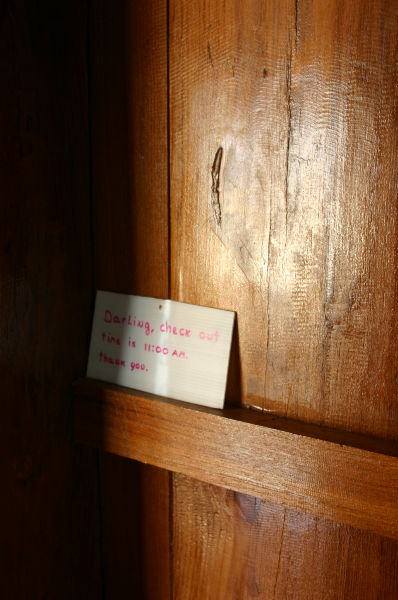 Darling, check out
time is 11:00 AM.
thank you.